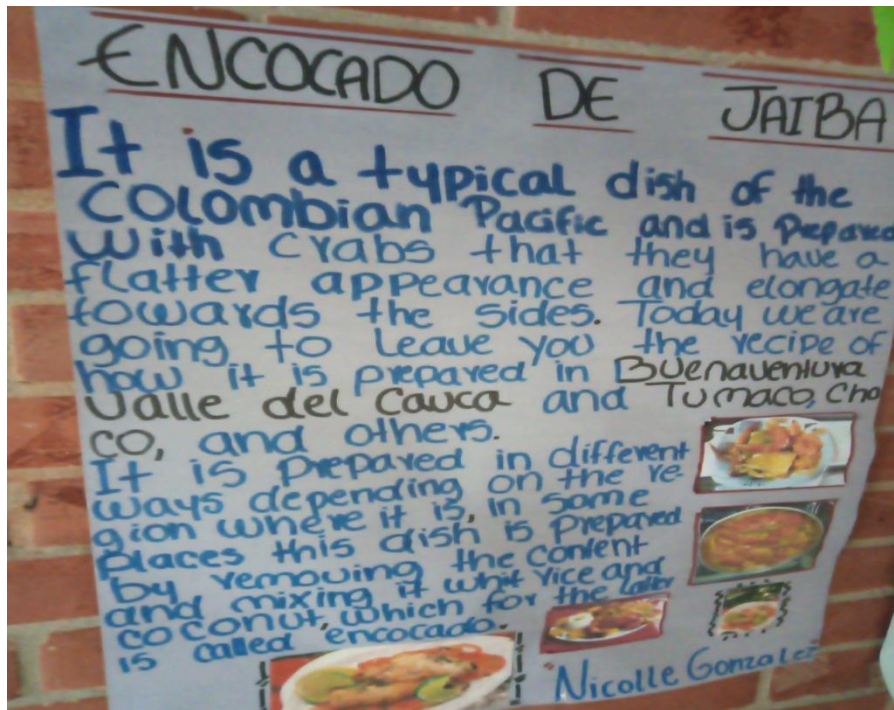 ENCOCADO DE JAIBA
It is a typical dish of the
COLOMbian Pacific and is Prepared
With crabs that they have a
flatter appearance and elongate
towards the sides. Today we are
going to Leave you the recipe of
how it is prepared in Buenaventura
Valle del Cauca and Tumaco, Cho
co, and others.
It is Prepared in different
ways depending on the re-
gion where it is, in some
Places this dish is Prepared
by removing the content
and mixing it whit rice and
coconut, which for the latter
is called "encocado.
"Nicolle Gonzalez"